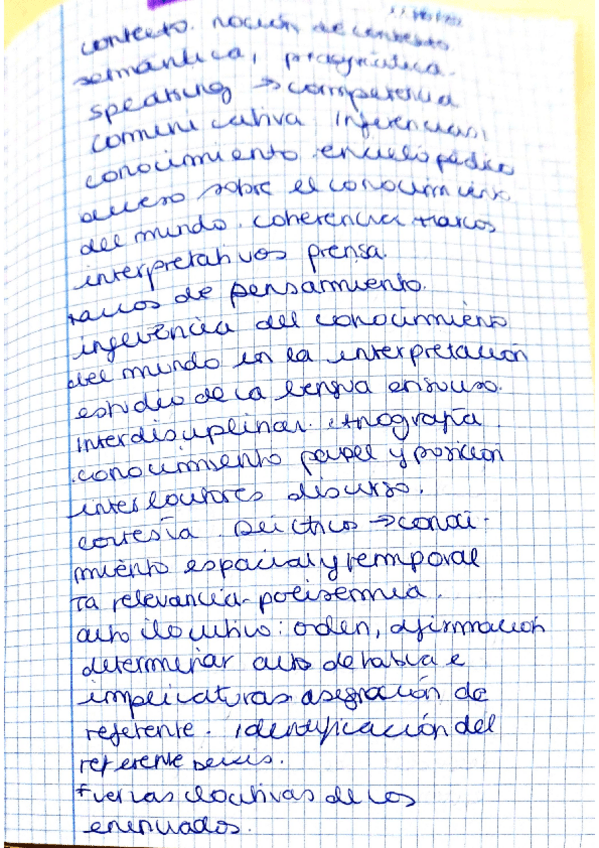 contexto. noción de contexto
semántica, pragmática.
speaking → competencia
comunicativa inferencias,
conocimiento enciclopédico
acceso sobre el conocimiento
del mundo. coherencia marcos
interpretativos prensa.
marcos de pensamiento.
inferencia del conocimiento
del mundo en la interpretación
estudio de la lengua en su uso.
interdisciplinar. etnografía
conocimiento papel y posición
interlocutores discurso.
cortesía. Deícticos → conoci-
miento espacial y temporal
Ta relevancia- polisemia.
acto ilocutivo: orden, afirmación
determinar acto de habla e
implicaturas. asignación de
referente. identificación del
referente deixis.
fuerzas ilocutivas de los
enunciados.